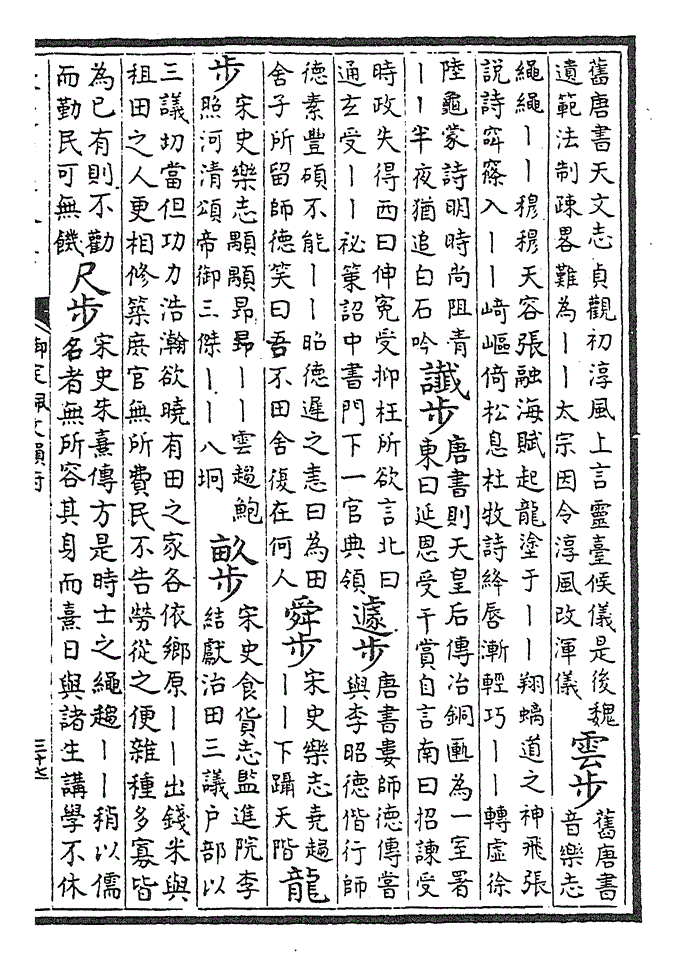 舊唐書天文志貞觀初淳風上言靈臺候儀是後魏
遺範法制疎畧難為丨丨太宗因令淳風改渾儀
雲步
舊唐書
音樂志
繩繩丨丨穆穆天容張融海賦起龍塗于丨丨翔螭道之神飛張
說詩窣䈴入丨丨崎嶇倚松息杜牧詩絳唇漸輕巧丨丨轉虛徐
陸龜蒙詩明時尚阻青
丨丨半夜猶追白石吟
讖步
唐書則天皇后傳冶銅匭為一室署
東曰延恩受干賞自言南曰招諫受
時政失得西曰伸寃受抑枉所欲言北曰
通玄受丨丨祕策詔中書門下一官典領
遽步
唐書婁師德傳嘗
與李昭德偕行師
德素豐碩不能丨丨昭德遲之恚曰為田
舍子所留師德笑曰吾不田舍復在何人
舜步
宋史樂志堯趨
丨丨下躡天階
龍
步
宋史樂志顒顒昂昂丨丨雲趨鮑
照河清頌帝御三傑丨丨八坰
畝步
宋史食貨志監進院李
結獻治田三議户部以
三議切當但功力浩瀚欲曉有田之家各依鄉原丨丨出錢米與
租田之人更相修築庶官無所費民不告勞從之便雜種多寡皆
為已有則不勸
而勤民可無饑
尺步
宋史朱熹傳方是時士之繩趨丨丨稍以儒
名者無所容其身而熹日與諸生講學不休
御定佩文韻府